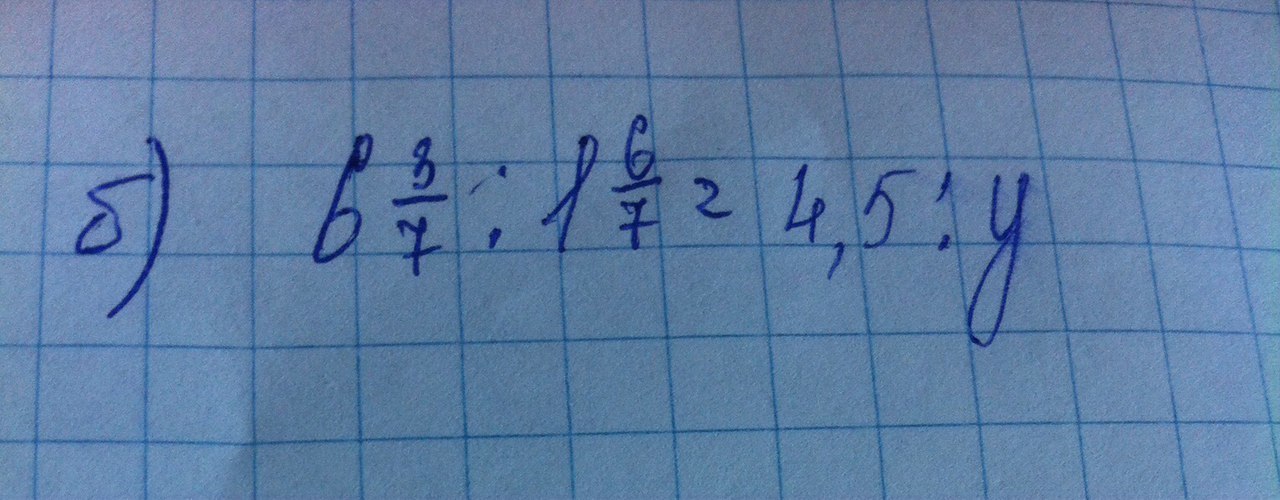 б) 6 3/7 : 1 6/7 = 4,5 : y